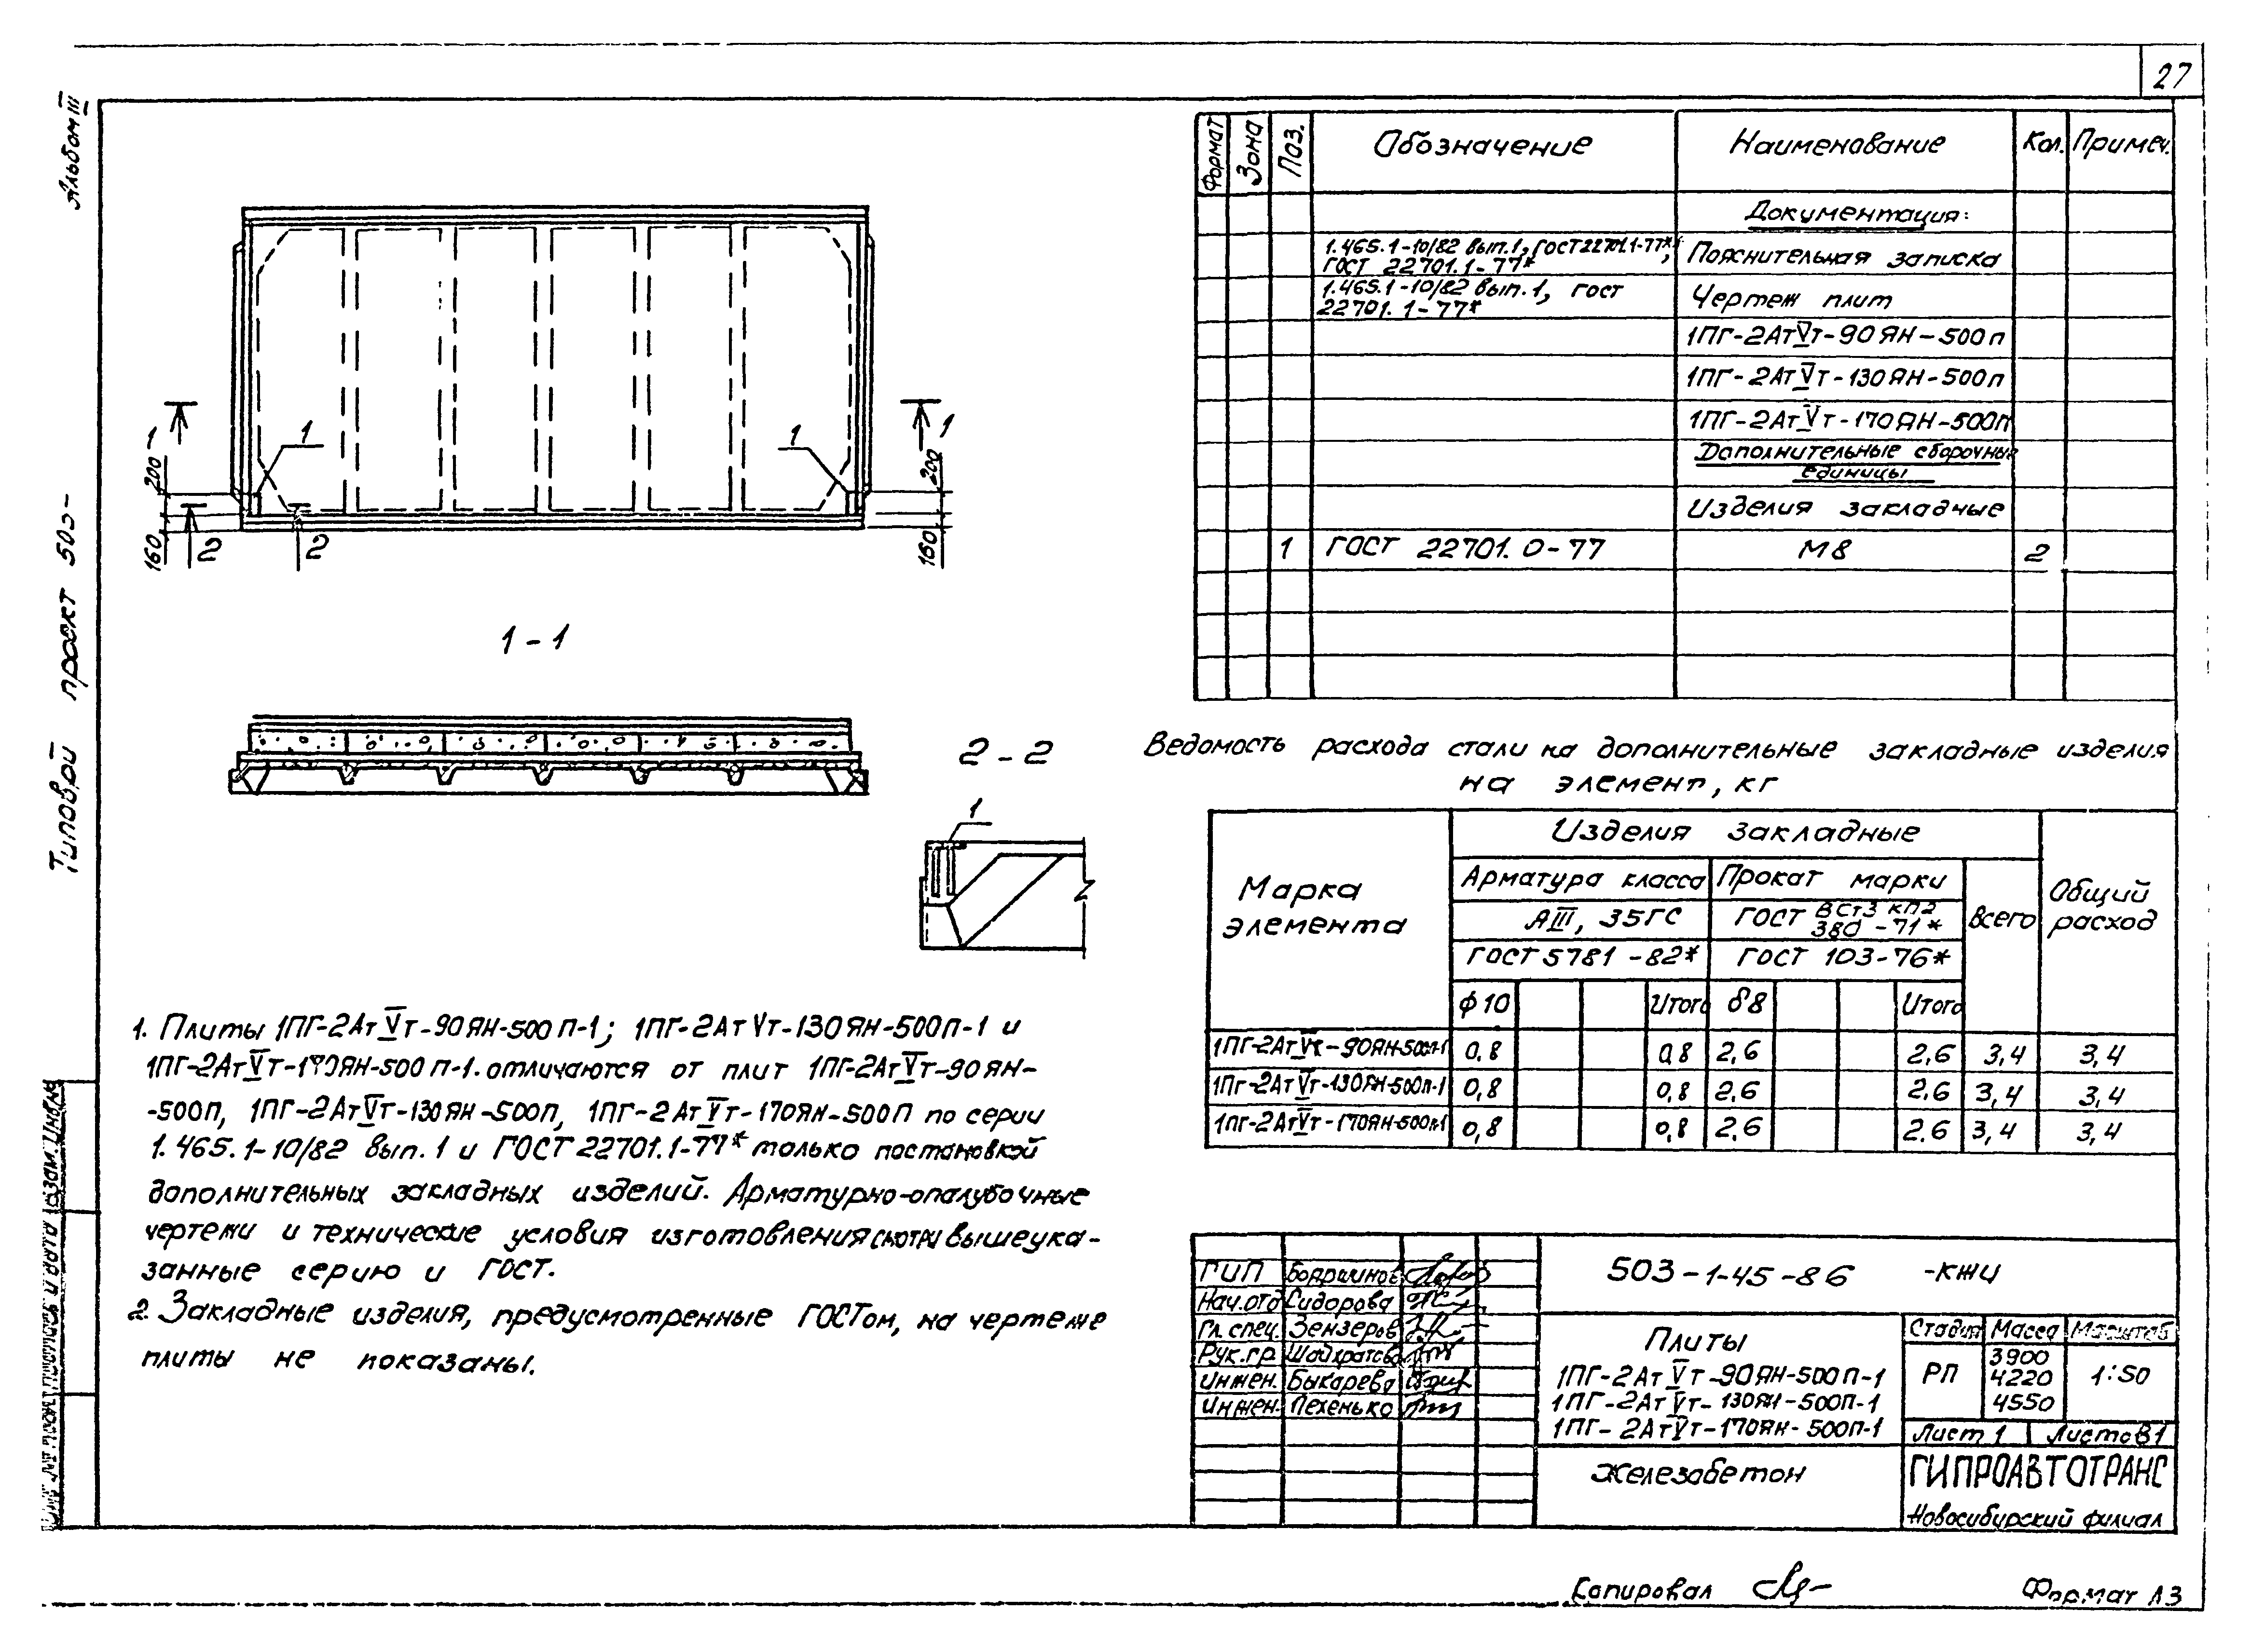 27
Альбом III
Типовой проект 503-
Взам. Инв. №
Подпись и дата
Формат Зона Поз. Обозначение Наименование Кол. Примеч.
Документация:
1.465.1-10/82 вып.1, ГОСТ 22701.1-77*, Пояснительная записка
ГОСТ 22701.1-77*
1.465.1-10/82 вып.1, ГОСТ Чертеж плит
22701.1-77*
1ПГ-2АтVт-90ЯН-500п
1ПГ-2АтVт-130ЯН-500п
1ПГ-2АтVт-170ЯН-500п
Дополнительные сборочные
единицы
Изделия закладные
1 ГОСТ 22701.0-77 М8 2
1 1 1 1
200 200
160 2 2 160
1-1
2-2
1
Ведомость расхода стали на дополнительные закладные изделия
на элемент, кг
Марка элемента Изделия закладные Общий расход
Арматура класса Прокат марки Всего
АIII, 35ГС ГОСТ ВСт3 кп2 380-71*
ГОСТ 5781-82* ГОСТ 103-76*
ф10 Итого δ8 Итого
1ПГ-2АтVт-90ЯН-500п-1 0,8 0,8 2,6 2,6 3,4 3,4
1ПГ-2АтVт-130ЯН-500п-1 0,8 0,8 2,6 2,6 3,4 3,4
1ПГ-2АтVт-170ЯН-500п-1 0,8 0,8 2,6 2,6 3,4 3,4
1. Плиты 1ПГ-2АтVт-90ЯН-500П-1; 1ПГ-2АтVт-130ЯН-500П-1 и
1ПГ-2АтVт-170ЯН-500П-1. отличаются от плит 1ПГ-2АтVт-90ЯН-
-500П, 1ПГ-2АтVт-130ЯН-500П, 1ПГ-2АтVт-170ЯН-500П по серии
1.465.1-10/82 вып.1 и ГОСТ 22701.1-77* только постановкой
дополнительных закладных изделий. Арматурно-опалубочные
чертежи и технические условия изготовления смотри вышеука-
занные серию и ГОСТ.
2. Закладные изделия, предусмотренные ГОСТом, на чертеже
плиты не показаны.
503-1-45-86 -КЖИ
ГИП Бояршинов
Нач.отд Сидорова
Гл.спец. Зензеров
Рук.гр.
Инжен. Быкарева
Инжен. Пехенько
Плиты
1ПГ-2АтVт-90ЯН-500П-1
1ПГ-2АтVт-130ЯН-500П-1
1ПГ-2АтVт-170ЯН-500П-1
Стадия Масса Масштаб
РП 3900 4220 4550 1:50
Лист 1 Листов 1
Железобетон
ГИПРОАВТОТРАНС
Новосибирский филиал
Копировал
Формат А3